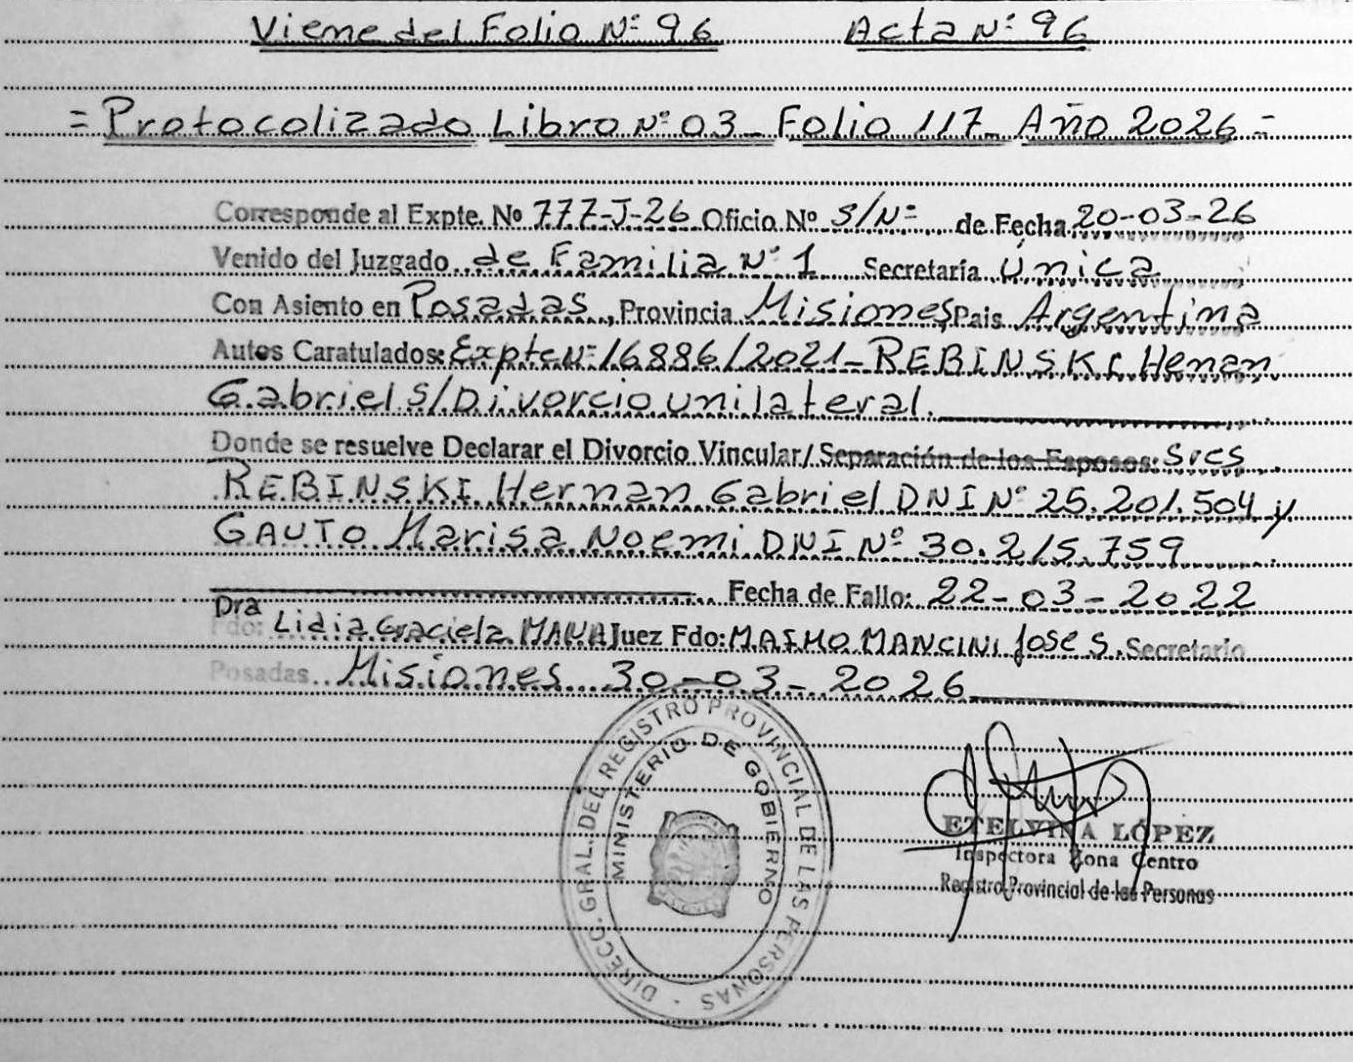 Viene del Folio Nº 96 Acta Nº 96
= Protocolizado Libro Nº 03_ Folio 117_ Año 2026 =
Corresponde al Expte. Nº 777-J-26 Oficio Nº S/Nº de Fecha 20-03-26
Venido del Juzgado de Familia Nº 1 Secretaría Única
Con Asiento en Posadas, Provincia Misiones, Pais Argentina
Autos Caratulados: Expte Nº 16886/2021_ REBINSKI Henan
Gabriel S/Divorcio unilateral.
Donde se resuelve Declarar el Divorcio Vincular/ Separación de los Esposos: Sres
REBINSKI Hernan Gabriel DNI Nº 25.201.504 y
GAUTO Marisa Noemi DNI Nº 30.215.759
Fecha de Fallo: 22-03-2022
Dra
Fdo: Lidia Graciela Juez Fdo: MANCINI José S. Secretario
Posadas Misiones 30-03-2026
DIRECC. GRAL. DEL REGISTRO PROVINCIAL DE LAS PERSONAS -
MINISTERIO DE GOBIERNO
ETELVINA LÓPEZ
Inspectora Zona Centro
Registro Provincial de las Personas